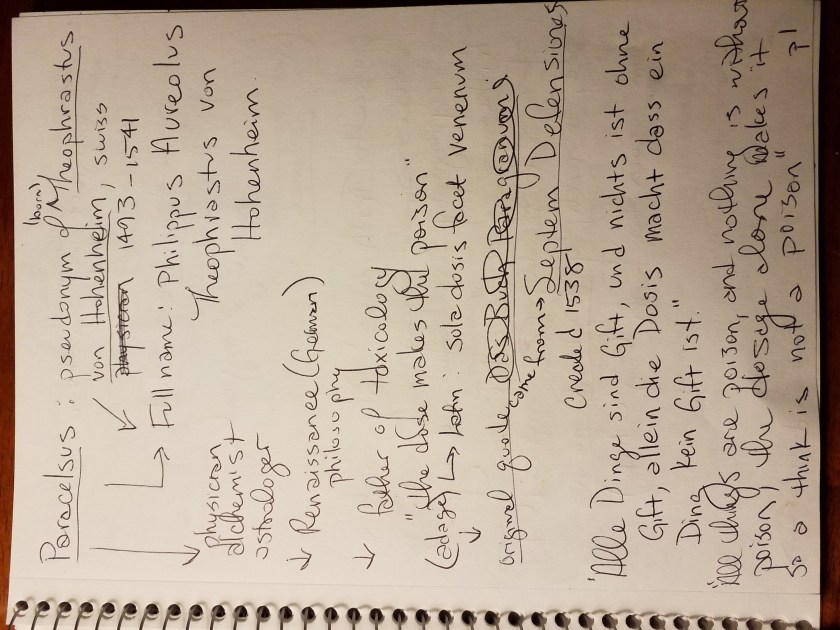 Paracelsus : pseudonym of Theophrastus
(born)
von Hohenheim, swiss
physician 1493-1541
Full name: Philippus Aureolus
Theophrastus von
Hohenheim.
physician
alchemist
astrologer
Renaissance (German)
philosophy
father of toxicology
"the dose makes the poison"
(adage) Latin: sola dosis facet venenum
original quote Das Buch Paragranum
came from Septem Defensiones
created 1538
"Alle Dinge sind Gift, und nichts ist ohne
Gift, allein die Dosis macht dass ein
Ding kein Gift ist."
"All things are poison, and nothing is without
poison, the dosage alone makes it
so a think is not a poison"